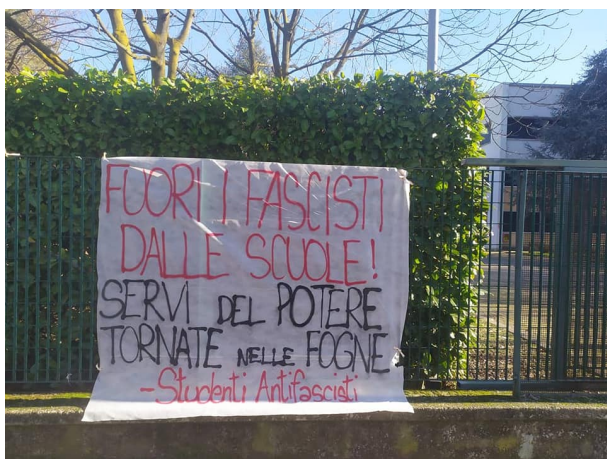 FUORI I FASCISTI
DALLE SCUOLE!
SERVI DEL POTERE
TORNATE NELLE FOGNE
-Studenti Antifascisti